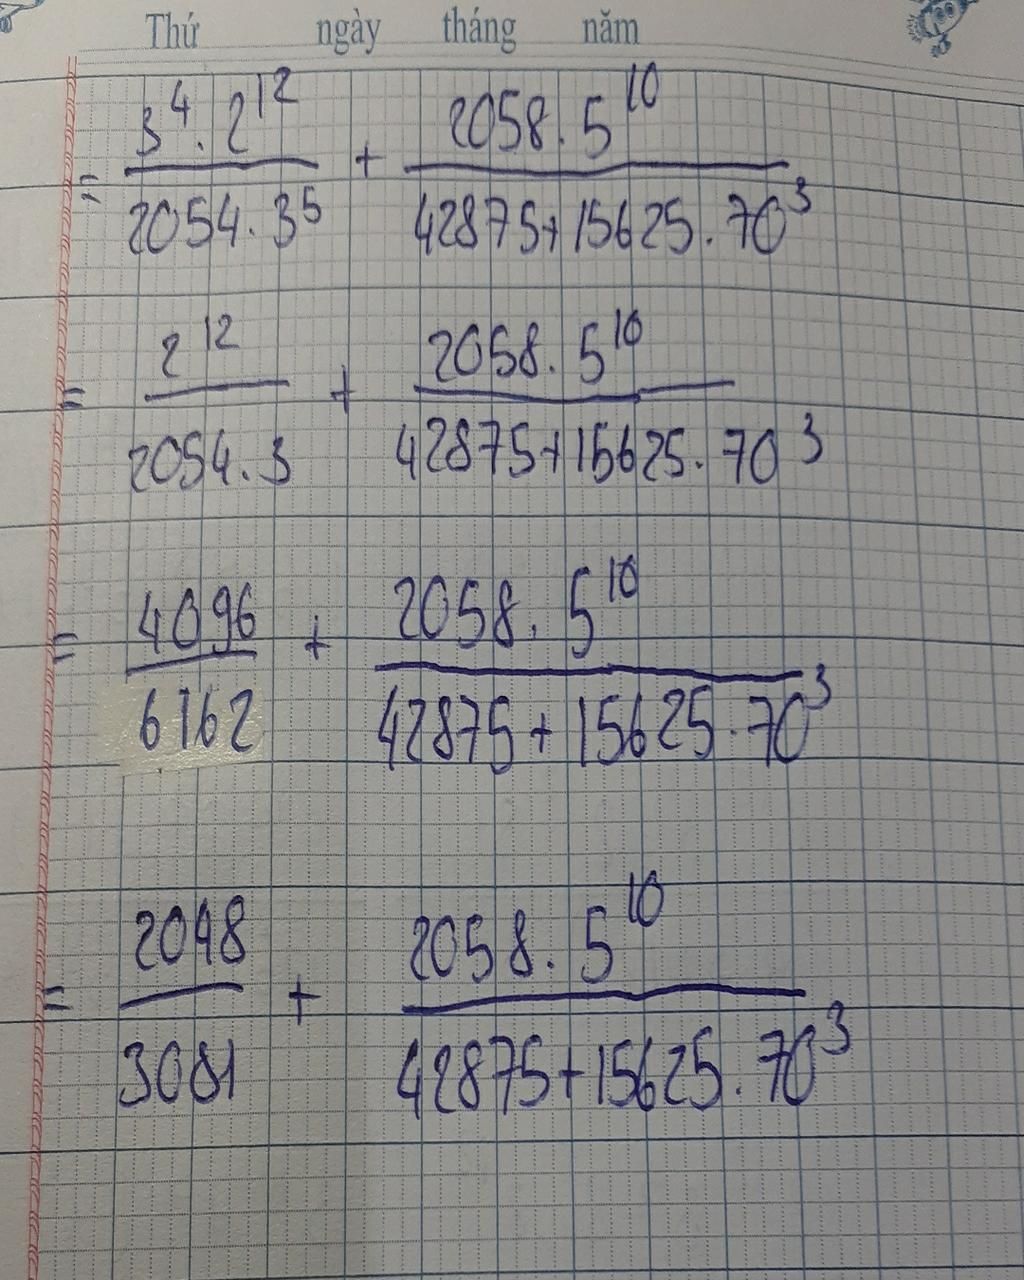 Thứ ngày tháng năm
= 3⁴. 2¹² / 2054. 3⁵ + 2058. 5¹⁰ / 42875+15625. 70³
= 2¹² / 2054. 3 + 2058. 5¹⁰ / 42875+15625. 70³
= 4096 / 6162 + 2058. 5¹⁰ / 42875 + 15625. 70³
= 2048 / 3081 + 2058. 5¹⁰ / 42875+15625. 70³